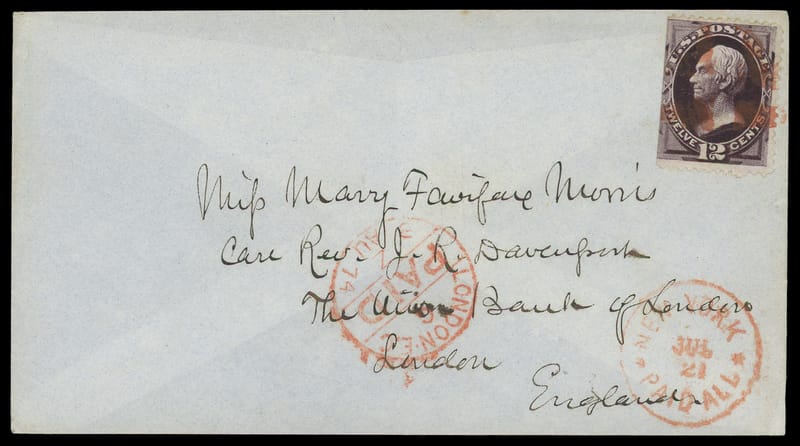 U.S. POSTAGE
TWELVE 12 CENTS
Miss Mary Fairfax Morris
Care Rev. J. R. Davenport
The Union Bank of London
London
England
LONDON·E.C
PAID
AU 74
NEW YORK
JUL
21
PAID ALL